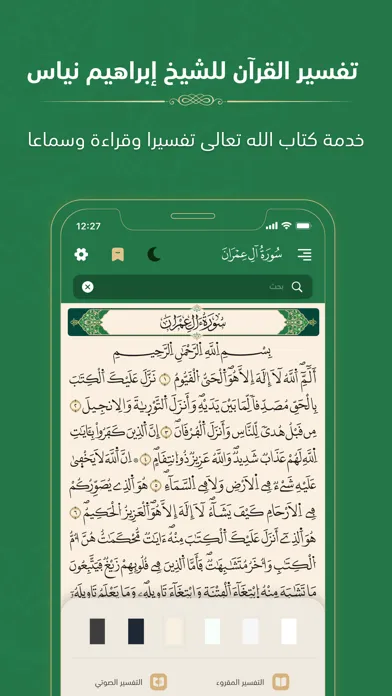 تفسير القرآن للشيخ إبراهيم نياس
خدمة كتاب الله تعالى تفسيرا وقراءة وسماعا
12:27
سُورَةُ آلِ عِمْرَانَ
بحث
سُورَةُ آلِ عِمْرَانَ
بِسْمِ اِللَّهِ اِلرَّحْمَٰنِ اِلرَّحِيمِ
أَلَٓمِّٓۖ اَللَّهُ لَآ إِلَٰهَ إِلَّا هُوَ اَلْحَيُّ اُلْقَيُّومُۖ ١ نَزَّلَ عَلَيْكَ اَلْكِتَٰبَ
بِالْحَقِّ مُصَدِّقاٗ لِّمَا بَيْنَ يَدَيْهِۖ وَأَنزَلَ اَلتَّوْرَيٰةَ وَالِانجِيلَ ٢
مِن قَبْلُ هُديٗ لِّلنَّاسِ وَأَنزَلَ اَلْفُرْقَانَۖ ٣ إِنَّ اَلذِينَ كَفَرُواْ بِـَٔايَٰتِ
اِللَّهِ لَهُمْ عَذَابٞ شَدِيدٞۖ وَاللَّهُ عَزِيزٞ ذُو اُنتِقَامٍۖ ٤ اِنَّ اَللَّهَ لَا يَخْفَىٰ
عَلَيْهِ شَےْءٞ فِے اِلَارْضِ وَلَا فِے اِلسَّمَآءِۖ ٥ هُوَ اَلذِے يُصَوِّرُكُمْ
فِے اِلَارْحَامِ كَيْفَ يَشَآءُۖ لَآ إِلَٰهَ إِلَّا هُوَ اَلْعَزِيزُ اُلْحَكِيمُۖ ٦
هُوَ اَلذِےٓ أَنزَلَ عَلَيْكَ اَلْكِتَٰبَ مِنْهُ ءَايَٰتٞ مُّحْكَمَٰتٌ هُنَّ أُمُّ
اُلْكِتَٰبِ وَأُخَرُ مُتَشَٰبِهَٰتٞۖ فَأَمَّا اَلذِينَ فِے قُلُوبِهِمْ زَيْغٞ فَيَتَّبِعُونَ
مَا تَشَٰبَهَ مِنْهُ اُبْتِغَآءَ اَلْفِتْنَةِ وَابْتِغَآءَ تَاوِيلِهِۦۖ وَمَا يَعْلَمُ تَاوِيلَهُۥٓ
التفسير المقروء
التفسير الصوتي